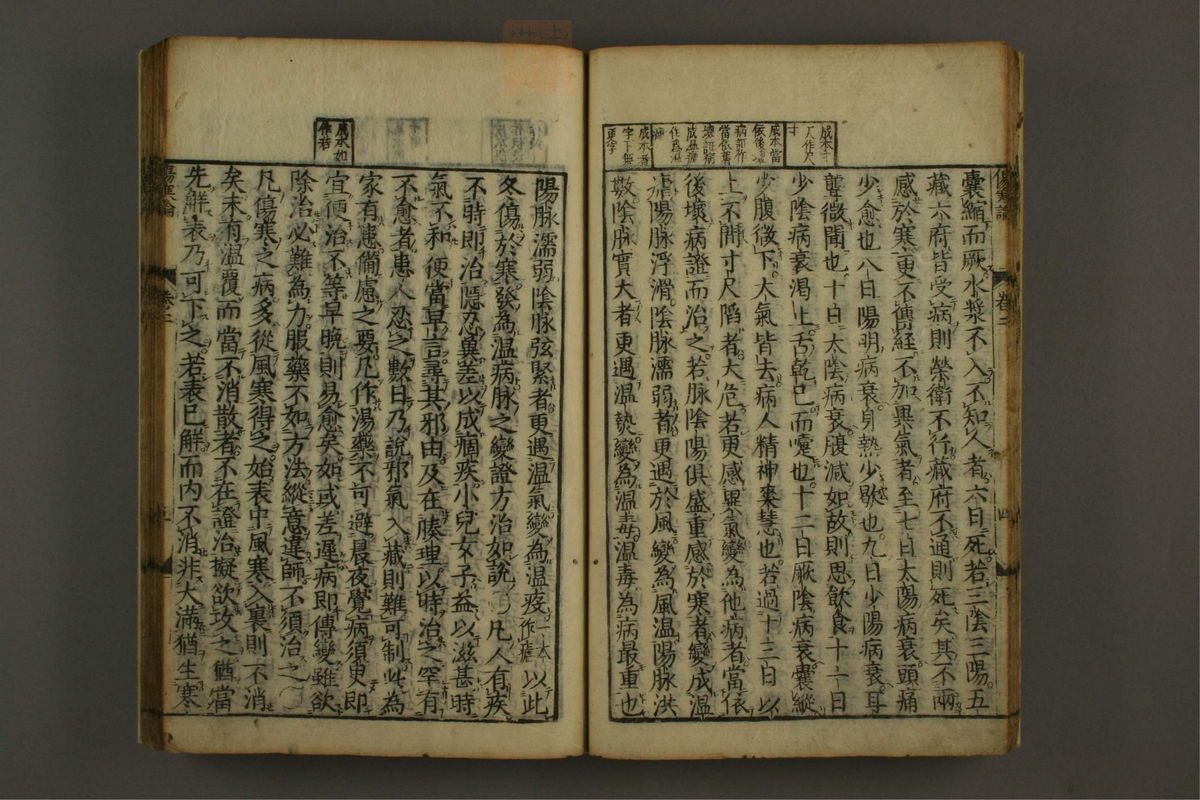 傷寒論
卷二
四
成本寸
尺作尺
寸
成本當
依後壞
病證作
當依舊
壞證病
成溫瘧
作為溫
瘧
成本者
字下無
更字
囊縮而厥水漿不入不知人者六日死若三陰三陽五
藏六府皆受病則榮衛不行藏府不通則死矣其不兩
感於寒更不傳經不加異氣者至七日太陽病衰頭痛
少愈也八日陽明病衰身熱少歇也九日少陽病衰耳
聾微聞也十日太陰病衰腹減如故則思飲食十一日
少陰病衰渴止舌乾已而嚏也十二日厥陰病衰囊縱
少腹微下大氣皆去病人精神爽慧也若過十三日以
上不間寸尺陷者大危若更感異氣變為他病者當依
後壞病證而治之若脉陰陽俱盛重感於寒者變成溫
瘧陽脉浮滑陰脉濡弱者更遇於風變為風溫陽脉洪
數陰脉實大者更遇溫熱變為溫毒溫毒為病最重也
陽脉濡弱陰脉弦緊者更遇溫氣變為溫疫一本作瘧以此
冬傷於寒發為溫病脉之變證方治如說凡人有疾
不時即治隱忍冀差以成痼疾小兒女子益以滋甚時
氣不和便當早言尋其邪由及在腠理以時治之罕有
不愈者患人忍之數日乃說邪氣入藏則難可制此為
家有患備慮之要凡作湯藥不可避晨夜覺病須臾即
宜便治不等早晚則易愈矣如或差遲病即傳變雖欲
除治必難為力服藥不如方法縱意違師不須治之
凡傷寒之病多從風寒得之始表中風寒入裏則不消
矣未有溫覆而當不消散者不在證治擬欲攻之猶當
先解表乃可下之若表已解而內不消非大滿猶生寒
成本如
作若
傷寒論
卷二
五